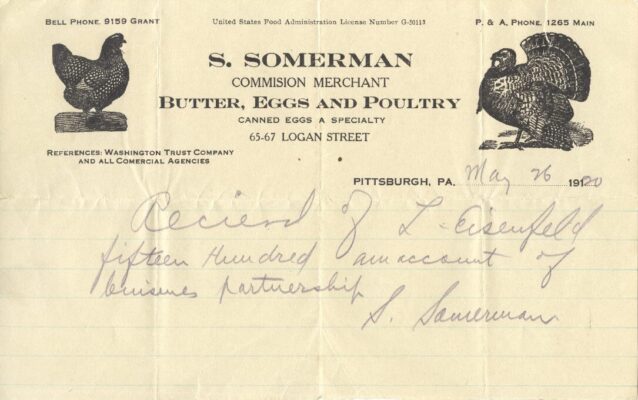 BELL PHONE, 9159 GRANT
United States Food Administration License Number G-50113
P. & A. PHONE, 1265 MAIN
S. SOMERMAN
COMMISION MERCHANT
BUTTER, EGGS AND POULTRY
CANNED EGGS A SPECIALTY
65-67 LOGAN STREET
REFERENCES: WASHINGTON TRUST COMPANY
AND ALL COMERCIAL AGENCIES
PITTSBURGH, PA. May 26 1920
Reciend of L. Eisenfeld
fifteen Hundred am account of
buisines partnership
S. Somerman